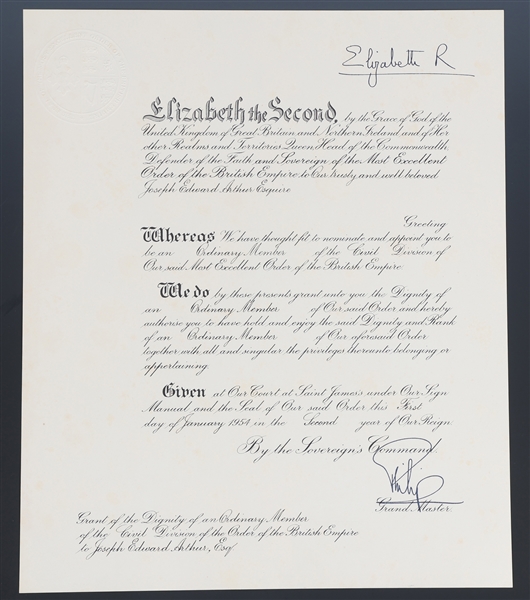 Elizabeth R
Elizabeth the Second, by the Grace of God of the
United Kingdom of Great Britain and Northern Ireland and of Her
other Realms and Territories Queen, Head of the Commonwealth,
Defender of the Faith and Sovereign of the Most Excellent
Order of the British Empire to Our trusty and well beloved
Joseph Edward Arthur Esquire
Greeting
Whereas We have thought fit to nominate and appoint you to
be an Ordinary Member of the Civil Division of
Our said Most Excellent Order of the British Empire
We do by these presents grant unto you the Dignity of
an Ordinary Member of Our said Order and hereby
authorise you to have hold and enjoy the said Dignity and Rank
of an Ordinary Member of Our aforesaid Order
together with all and singular the privileges thereunto belonging or
appertaining.
Given at Our Court at Saint James's under Our Sign
Manual and the Seal of Our said Order this First
day of January 1954 in the Second year of Our Reign
By the Sovereign's Command.
Philip
Grand Master.
Grant of the Dignity of an Ordinary Member
of the Civil Division of the Order of the British Empire
to Joseph Edward Arthur, Esq